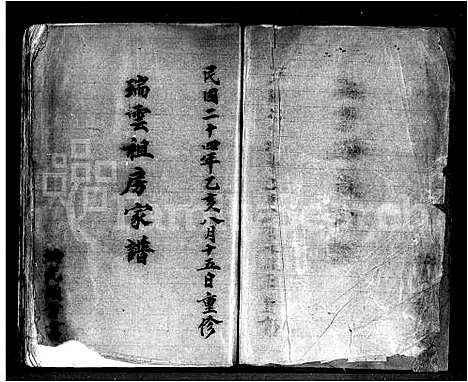 民国二十四年乙亥八月十五日重修
瑞雲祖房家譜